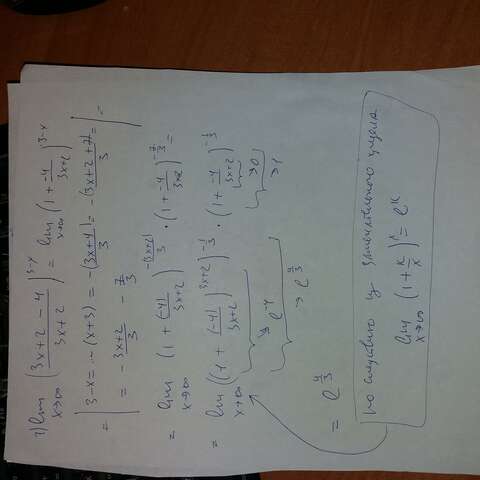 1) lim x→∞ ((3x+2-4)/(3x+2))^(3-x) = lim x→∞ (1+(-4)/(3x+2))^(3-x) =
= | 3-x = -(x+3) = -(3x+4)/3 = -(3x+2+7)/3 =
= -(3x+2)/3 - 7/3 | =
= lim x→∞ (1+(-4)/(3x+2))^(-(3x+2)/3) · (1+(-4)/(3x+2))^(-7/3) =
= lim x→∞ ((1+(-4)/(3x+2))^(3x+2))^(-1/3) · (1+(-4)/(3x+2))^(-7/3)
→0
→e^-4 →1
→e^(4/3)
= e^(4/3)
по следствию из замечательного предела
lim x→∞ (1+k/x)^x = e^k